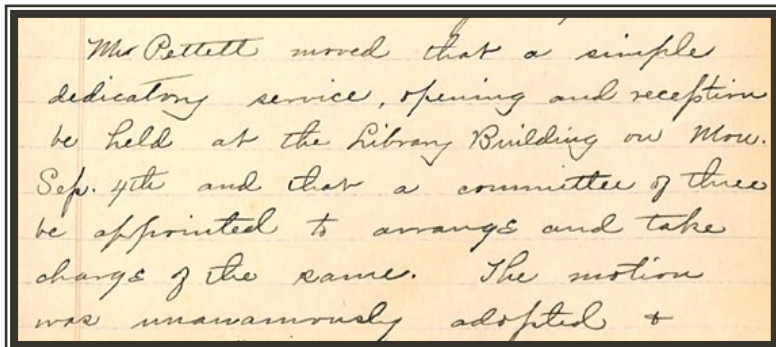 Mrs Pettett moved that a simple
dedicatory service, opening and reception
be held at the Library Building on Mon.
Sep. 4th and that a committee of three
be appointed to arrange and take
charge of the same. The motion
was unanamously adopted &